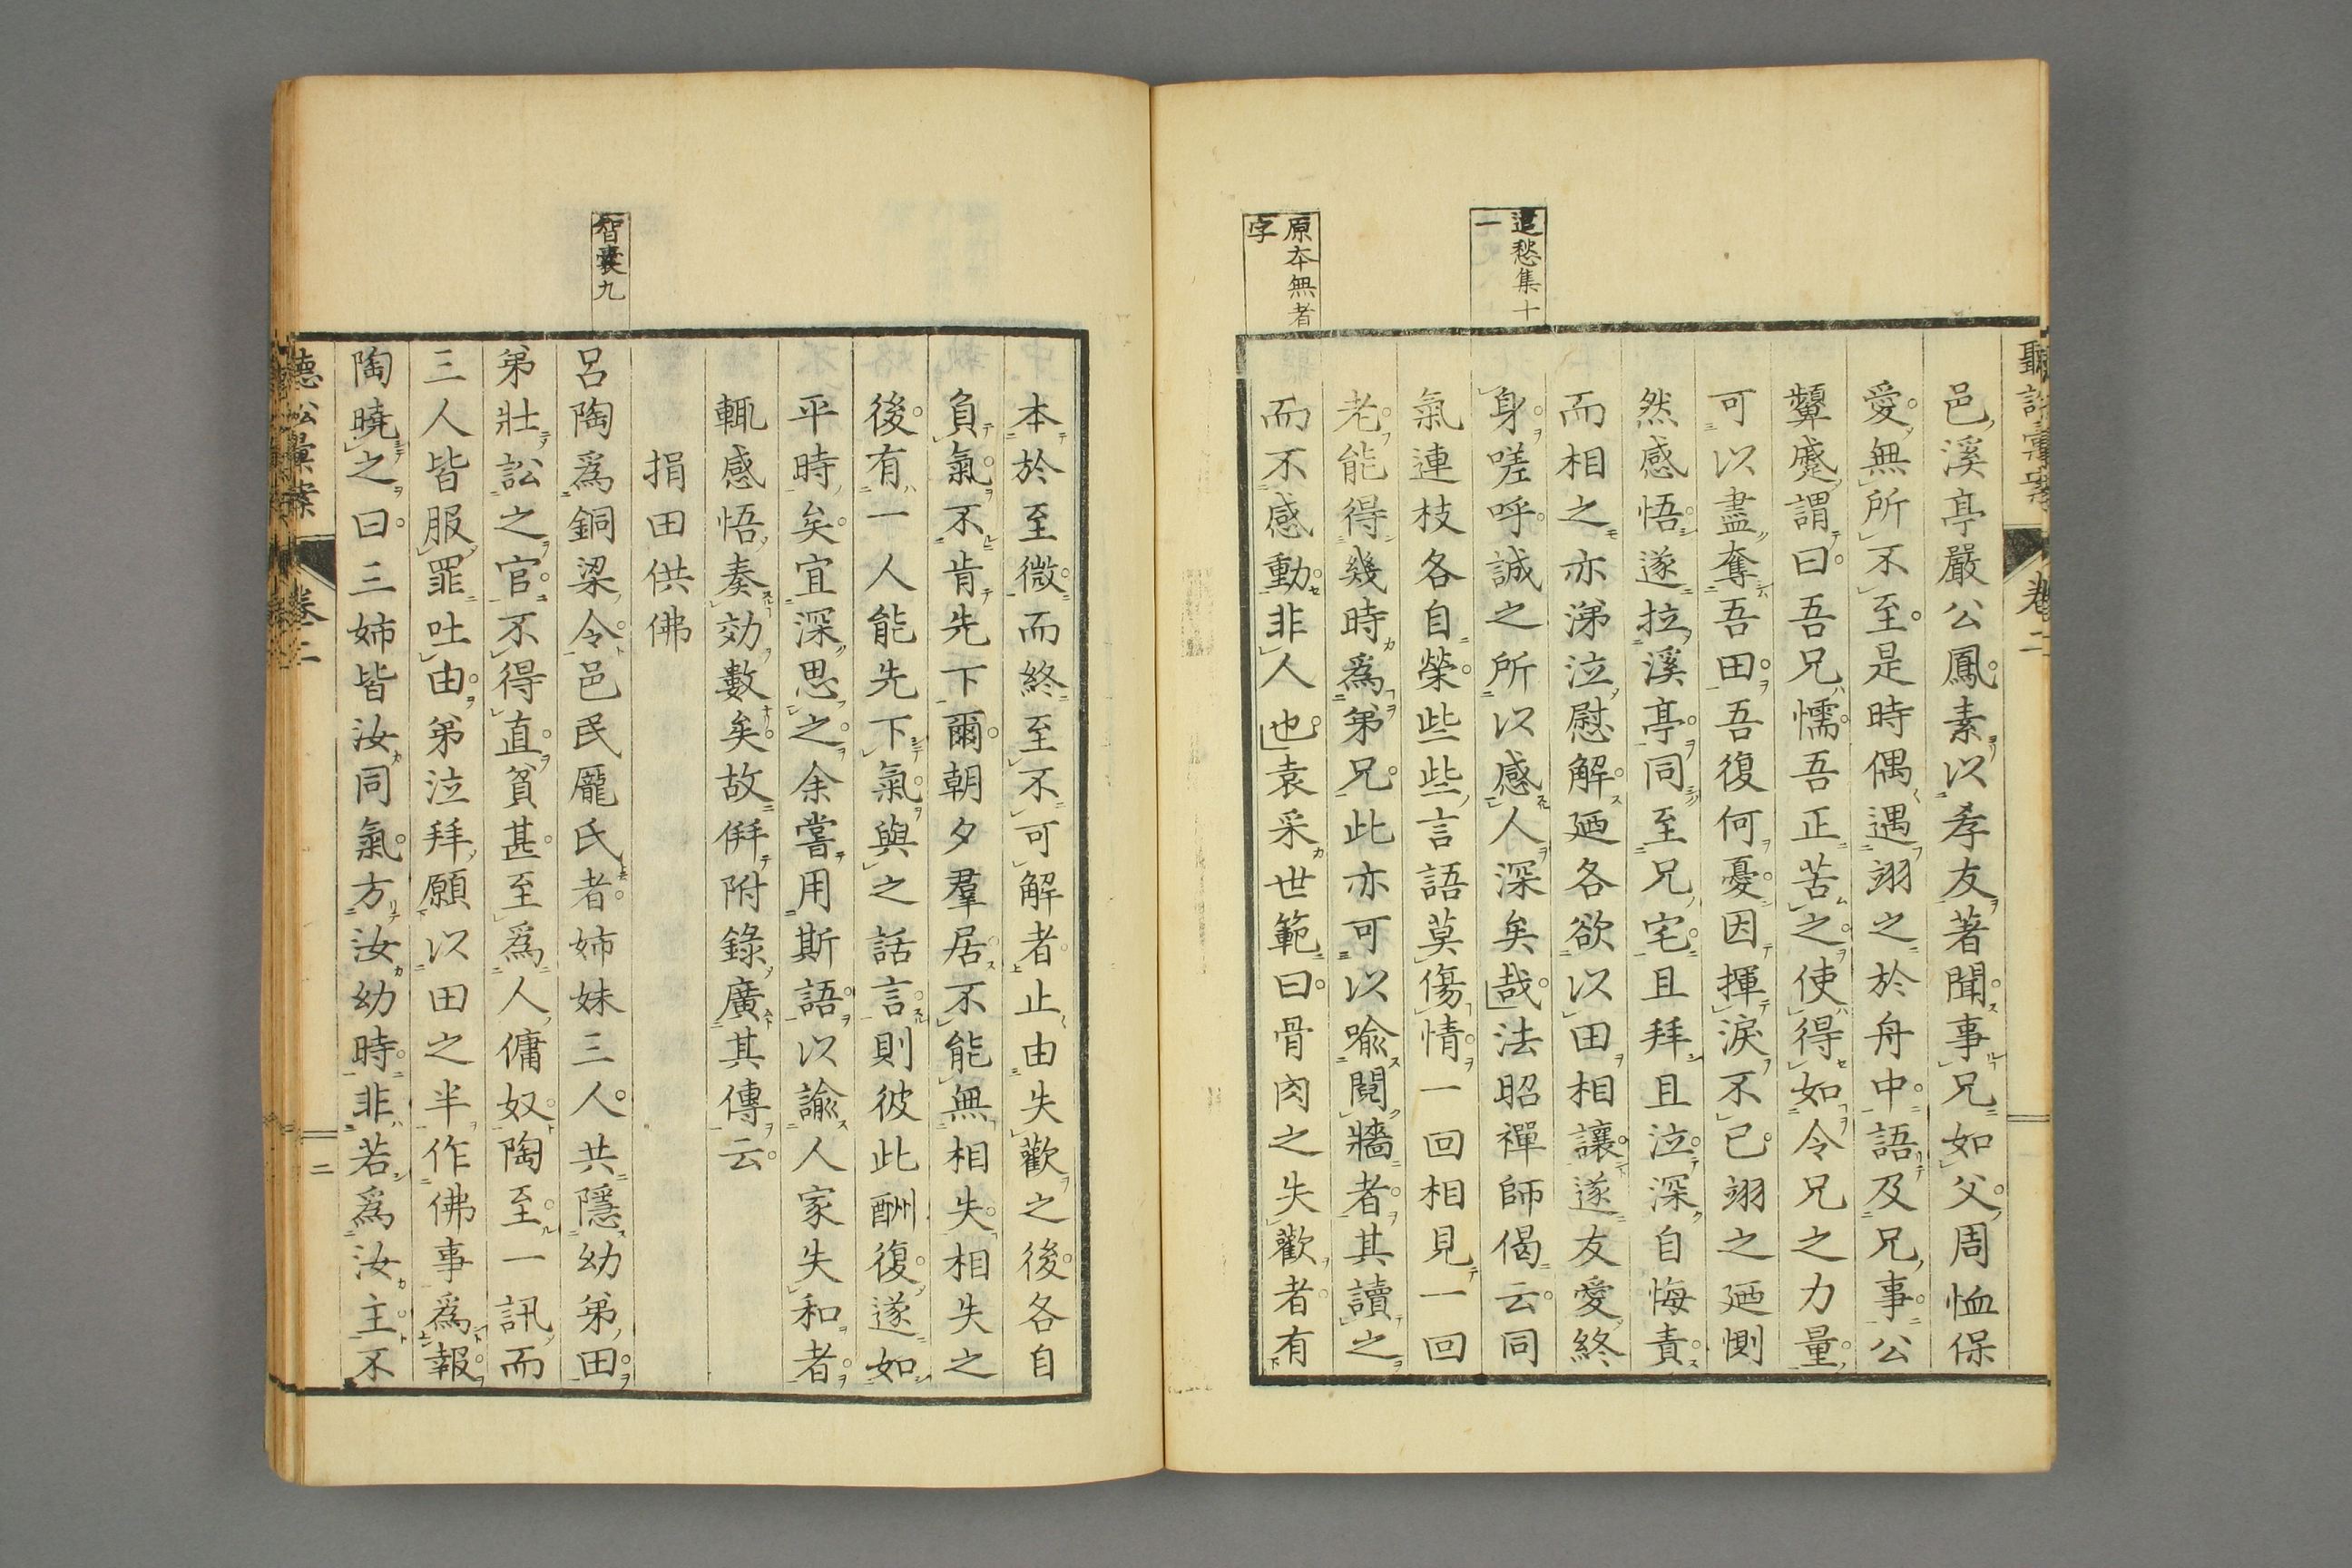 聽訟彙案
卷二
邑溪亭嚴公鳳素以孝友著聞事兄如父周恤保
愛無所不至是時偶遇翊之於舟中語及兄事公
顰蹙謂曰吾兄懦吾正苦之使得如令兄之力量
可以盡奪吾田吾復何憂因揮淚不已翊之廼惻
然感悟遂拉溪亭同至兄宅且拜且泣深自悔責
而相之亦涕泣慰解廼各欲以田相讓遂友愛終
遣愁集十一
身嗟呼誠之所以感人深矣哉法昭禪師偈云同
氣連枝各自榮些些言語莫傷情一回相見一回
老能得幾時爲弟兄此亦可以喩鬩牆者其讀之
原本無者字
而不感動非人也袁采世範曰骨肉之失歡者有
本於至微而終至不可解者止由失歡之後各自
負氣不肯先下爾朝夕羣居不能無相失相失之
後有一人能先下氣與之話言則彼此酬復遂如
平時矣宜深思之余嘗用斯語以諭人家失和者
輒感悟奏効數矣故倂附錄廣其傳云
捐田供佛
智囊九
呂陶爲銅梁令邑民龐氏者姉妹三人共隱幼弟田
弟壯訟之官不得直貧甚至爲人傭奴陶至一訊而
三人皆服罪吐由弟泣拜願以田之半作佛事爲報
陶曉之曰三姉皆汝同氣方汝幼時非若爲汝主不
聽訟彙案
卷二
二